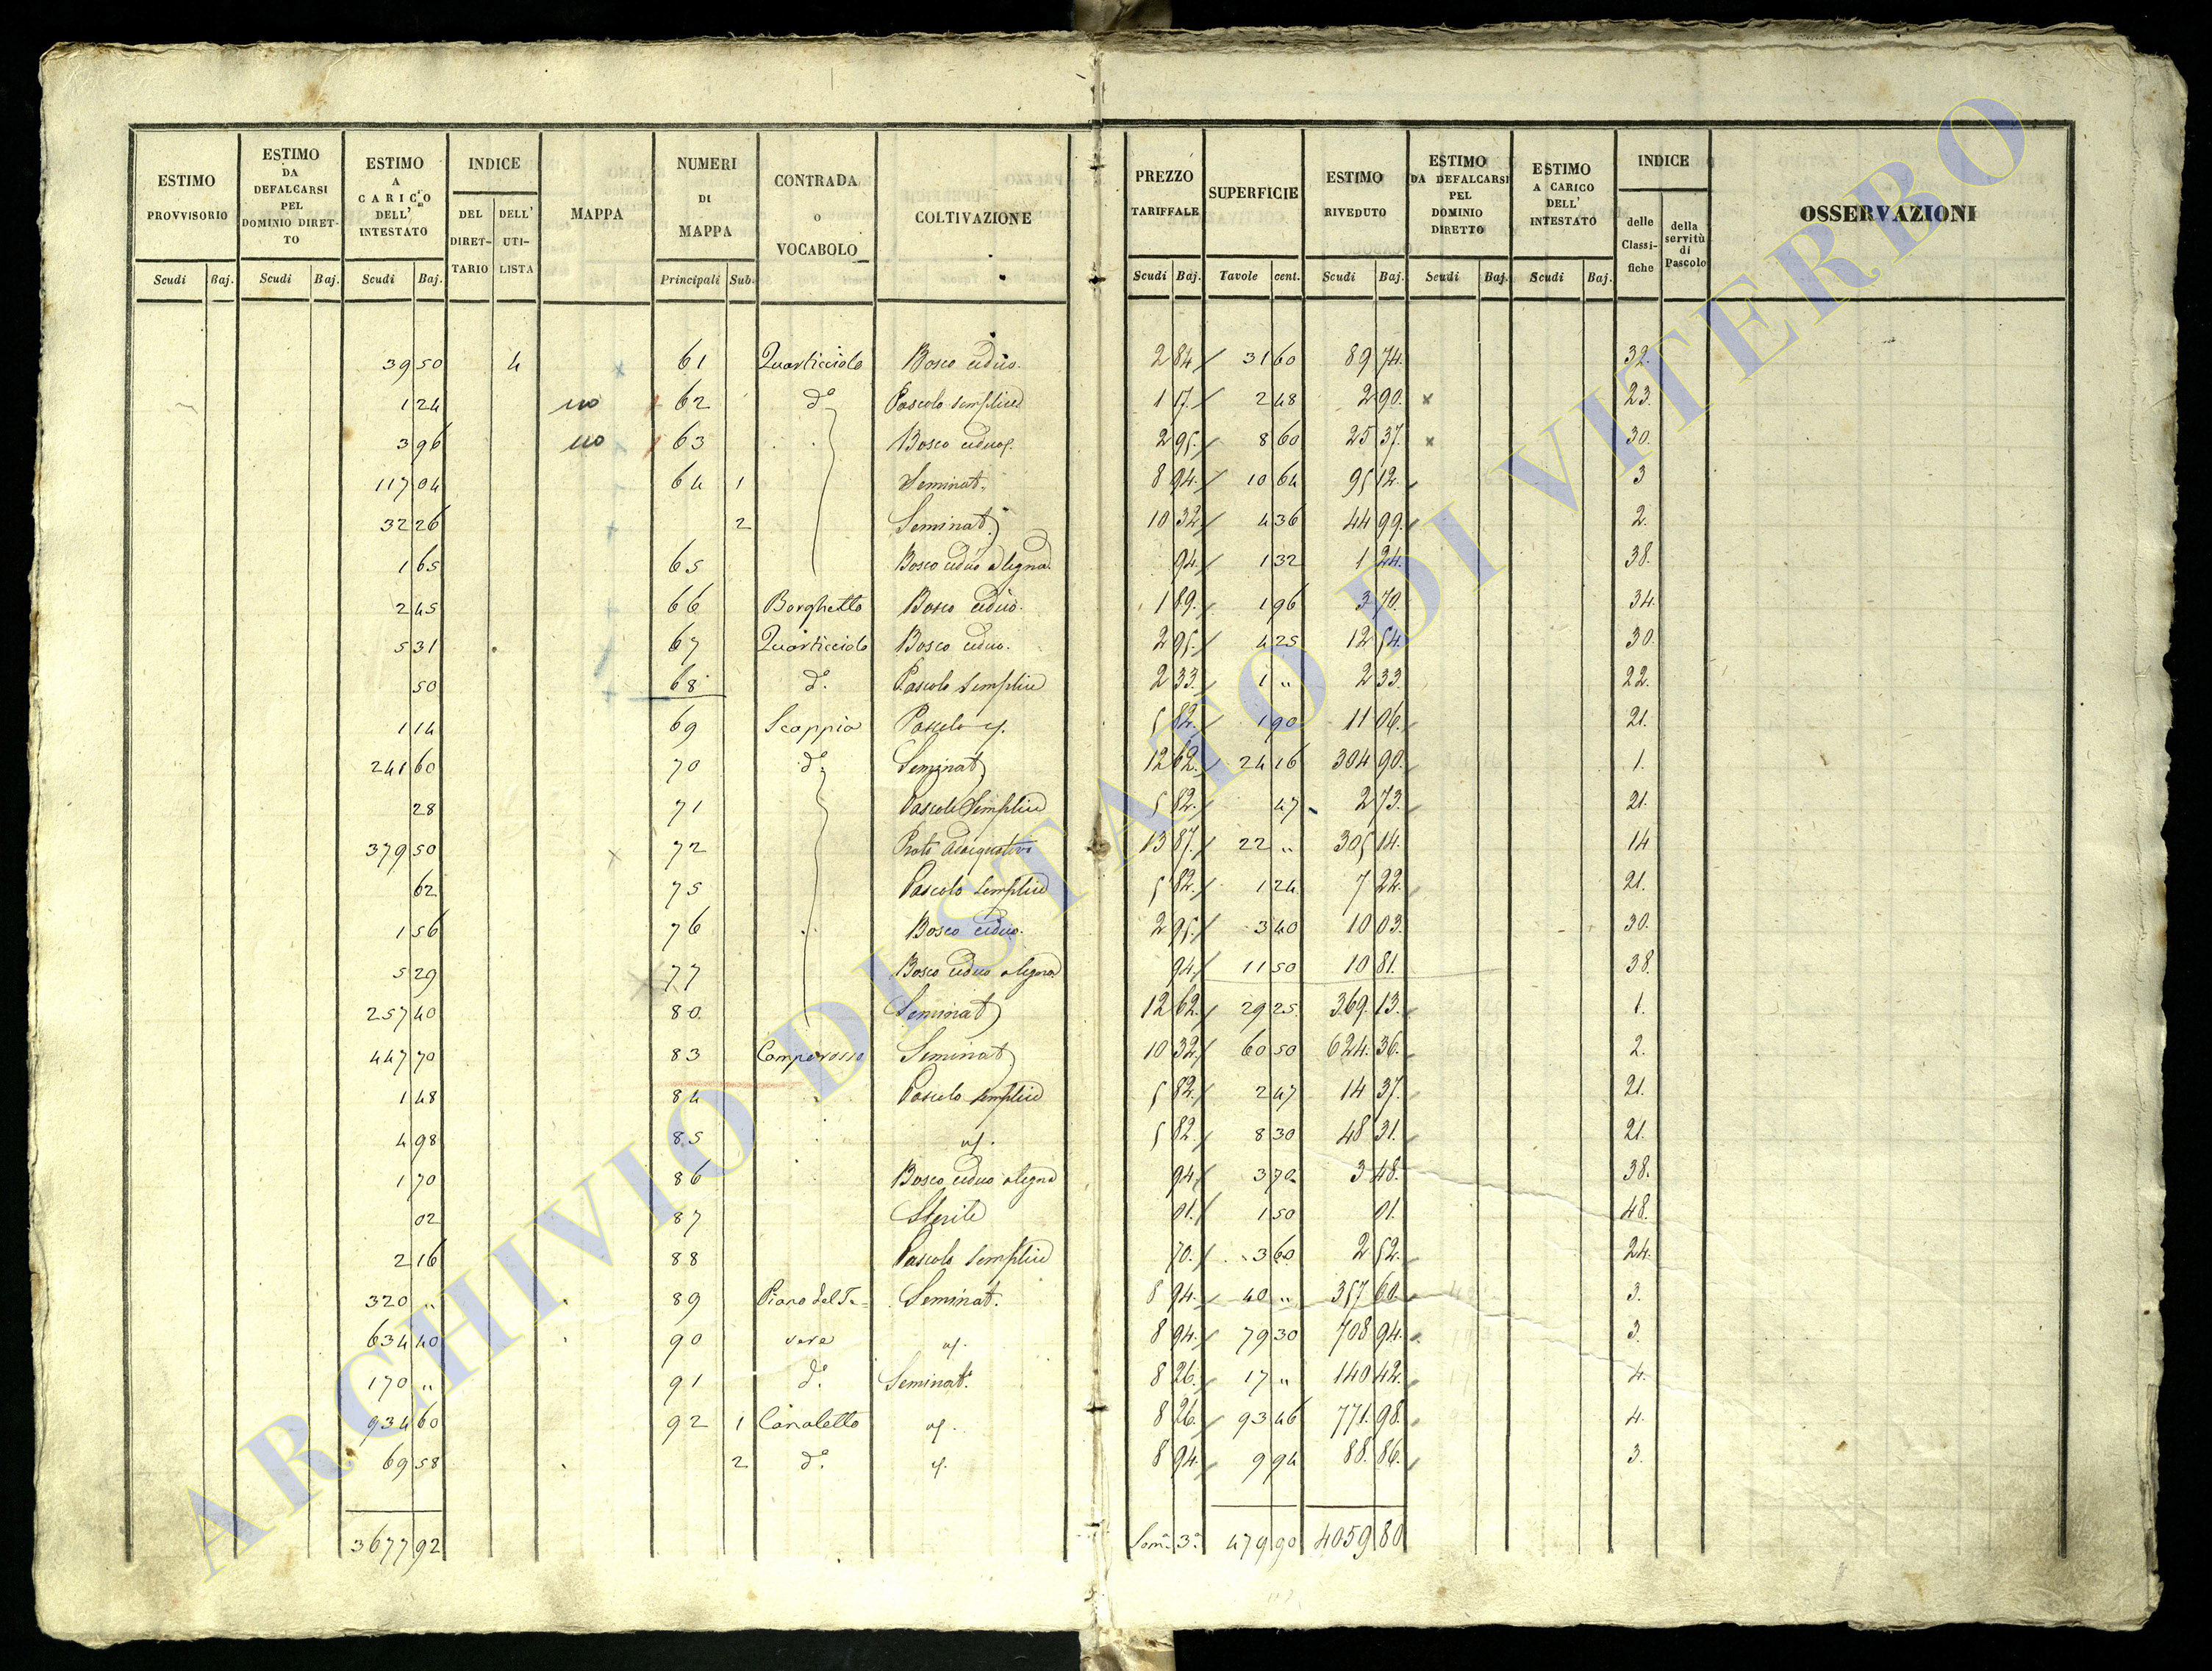 ESTIMO PROVVISORIO | ESTIMO DA DEFALCARSI PEL DOMINIO DIRET-TO | ESTIMO A CARICO DELL' INTESTATO | INDICE | MAPPA | NUMERI DI MAPPA | CONTRADA o VOCABOLO | COLTIVAZIONE | PREZZO TARIFFALE | SUPERFICIE | ESTIMO RIVEDUTO | ESTIMO DA DEFALCARSI PEL DOMINIO DIRETTO | ESTIMO A CARICO DELL' INTESTATO | INDICE | OSSERVAZIONI
DEL DIRET-TARIO | DELL' UTI-LISTA | delle Classi-fiche | della servitù di Pascolo
Scudi | Baj. | Scudi | Baj. | Scudi | Baj. | Principali | Sub. | Scudi | Baj. | Tavole | cent. | Scudi | Baj. | Scudi | Baj. | Scudi | Baj.
39 50 | 4 | 61 | Quarticciolo | Bosco ceduo. | 2 84 | 31 60 | 89 74. | 32.
1 24 | no | 62 | d.º | Pascolo semplice | 1 17. | 2 48 | 2 90. | x | 23.
3 96 | no | 63 | Bosco ceduo | 2 95. | 8 60 | 25 37. | x | 30.
117 04 | 64 | 1 | Seminat. | 8 94. | 10 64 | 95 12. | 3
32 26 | 2 | Seminat. | 10 32 | 4 36 | 44 99. | 2.
1 65 | 65 | Bosco ceduo a legna | 94. | 1 32 | 1 24. | 38.
2 45 | 66 | Borghetto | Bosco ceduo. | 1 89. | 1 96 | 3 70. | 34.
5 31 | 67 | Quarticciolo | Bosco ceduo. | 2 95. | 4 25 | 12 54. | 30.
50 | 68 | d.º | Pascolo semplice | 2 33. | 1 " | 2 33. | 22.
1 14 | 69 | Scappia | Pascolo | 5 82. | 1 90 | 11 06. | 21.
241 60 | 70 | d.º | Seminat | 12 62. | 24 16 | 304 90. | 1.
28 | 71 | Pascolo Semplice | 5 82. | 47 | 2 73. | 21.
379 50 | 72 | Prato | 13 87. | 22 " | 305 14. | 14
62 | 75 | Pascolo semplice | 5 82. | 1 24 | 7 22. | 21.
1 56 | 76 | Bosco ceduo. | 2 95. | 3 40 | 10 03. | 30.
5 29 | 77 | Bosco ceduo a legna | 94. | 11 50 | 10 81. | 38.
257 40 | 80. | Seminat | 12 62. | 29 25. | 369. 13. | 1.
447 70 | 83 | Camporosso | Seminat | 10 32. | 60 50 | 624. 36. | 2.
1 48 | 84 | Pascolo semplice | 5 82. | 2 47 | 14 37. | 21.
4 98 | 85 | 5 82. | 8 30 | 48 31. | 21.
1 70 | 86 | Bosco ceduo a legna | 94. | 3 70 | 3 48. | 38.
02 | 87 | Sterile | 01. | 1 50 | 01. | 48.
2 16 | 88 | Pascolo semplice | 70. | 3 60 | 2 52. | 24.
320 " | 89 | Piano del Te= | Seminat. | 8 94. | 40 " | 357 60. | 3.
634 40 | 90 | vere | 8 94. | 79 30 | 708 94. | 3.
170 " | 91 | d.º | Seminat. | 8 26. | 17 " | 140 42. | 4.
934 60 | 92 | 1 | Canaletto | 8 26. | 93 46 | 771. 98. | 4.
69 58 | 2 | d.º | 8 94. | 9 94 | 88. 86. | 3.
3677 92 | Som.ª 3.ª | 479 90 | 4059 80
ARCHIVIO DI STATO DI VITERBO